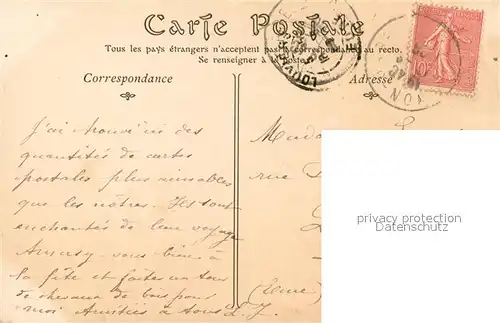 Carte Postale
Tous les pays étrangers n'acceptent pas la correspondance au recto.
Se renseigner à la poste
Correspondance
Adresse
J'ai trouvé ici des
quantités de cartes
postales plus aimables
que les nôtres. Ils sont
enchantés de leur voyage
Amusez-vous bien à
la fête et faites un tour
de chevaux de bois pour
moi Amitiés à tous L. J.
Mada
rue
(Eure)
LOUVIERS
10c
privacy protection
Datenschutz